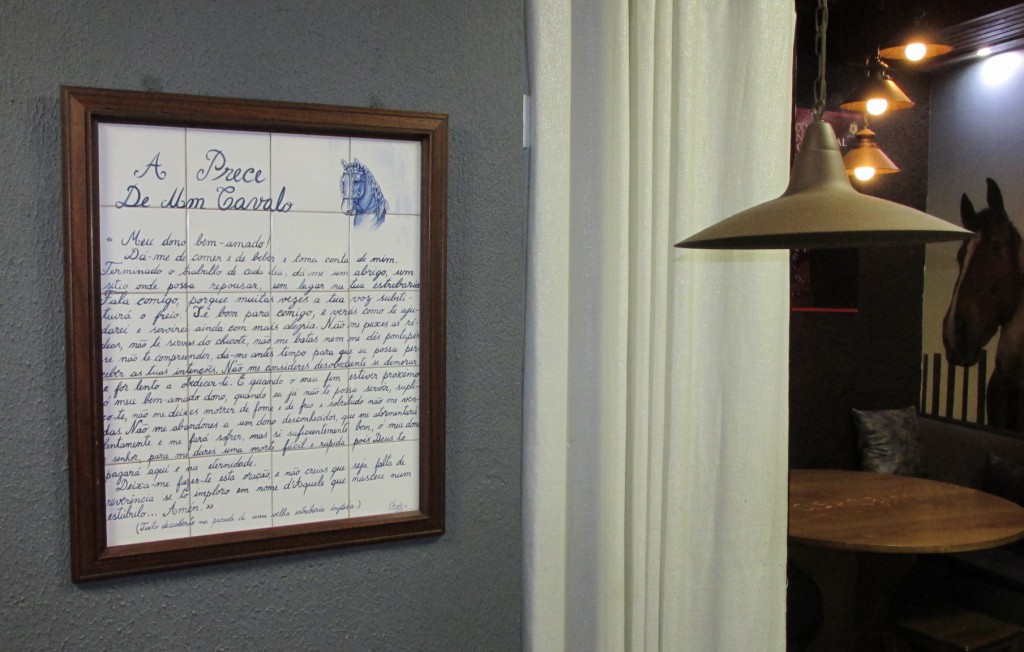 A Prece
De Um Cavalo
« Meu dono bem-amado!
Dá-me de comer e de beber e toma conta de mim.
Terminado o trabalho de cada dia, dá-me um abrigo, um
sítio onde possa repousar, um lugar na tua estrebaria
Fala comigo, porque muitas vezes a tua voz substi-
tuirá o freio. Sê bom para comigo, e verás como te aju-
darei e servirei ainda com mais alegria. Não me puxes as ré-
deas, não te sirvas do chicote, não me batas nem me dês pontapés
se não te compreender, dá-me antes tempo para que eu possa per-
ceber as tuas intenções. Não me consideres desobediente se demorar
e for lento a obedecer-te. E quando o meu fim estiver próximo
ó meu bem-amado dono, quando eu já não te possa servir, suplí-
co-te, não me deixes morrer de fome e de frio e sobretudo não me ven-
das. Não me abandones a um dono desconhecido, que me atormentará
lentamente e me fará sofrer, mas sê suficientemente bom, o meu dono
senhor, para me dares uma morte fácil e rápida pois Deus to
pagará aqui e na eternidade.
Deixa-me fazer-te esta oração e não creias que seja falta de
reverência se to imploro em nome d'Aquele que nasceu num
estábulo... Amen.»
(Texto descoberto na parede de uma velha estrebaria inglesa.)